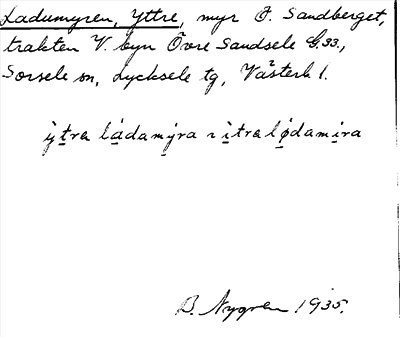 Ladumyren, Yttre, myr Ö. Sandberget,
trakten V. byn Övre Sandsele G.33.,
Sorsele sn, Lycksele tg, Västerb l.
ỳtra ládamýra ı ìtralǿdamira
B. Nygren 1935.